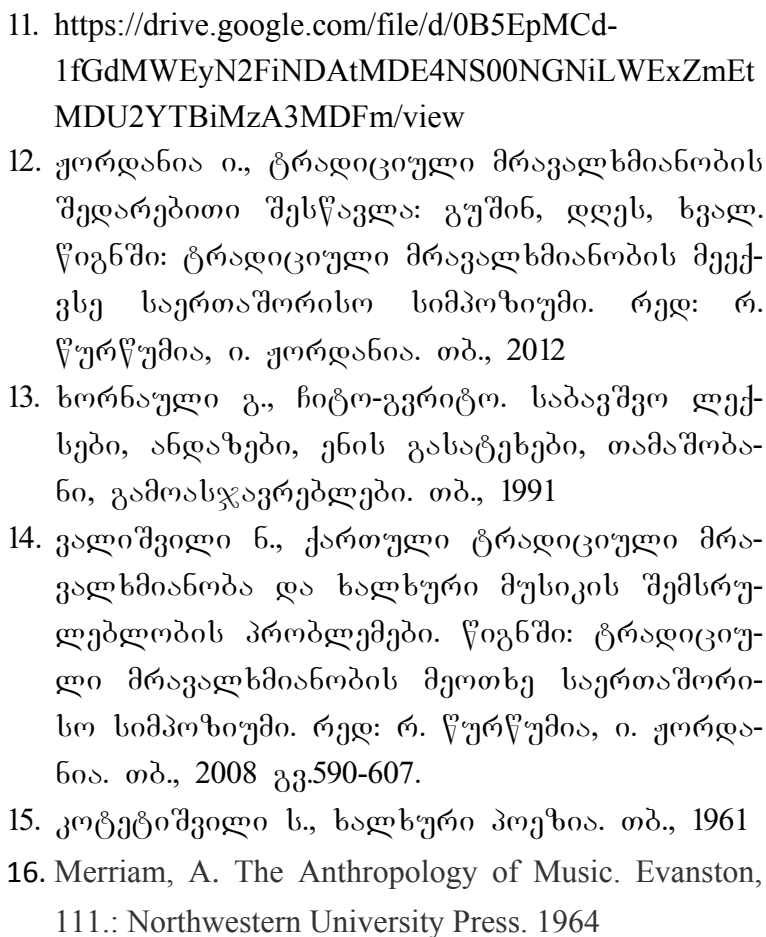 11. https://drive.google.com/file/d/0B5EpMCd-
1fGdMWEyN2FiNDAtMDE4NS00NGNiLWExZmEt
MDU2YTBiMzA3MDFm/view
12. ჟორდანია ი., ტრადიციული მრავალხმიანობის
შედარებითი შესწავლა: გუშინ, დღეს, ხვალ.
წიგნში: ტრადიციული მრავალხმიანობის მეექ-
ვსე საერთაშორისო სიმპოზიუმი. რედ: რ.
წურწუმია, ი. ჟორდანია. თბ., 2012
13. ხორნაული გ., ჩიტო-გვრიტო. საბავშვო ლექ-
სები, ანდაზები, ენის გასატეხები, თამაშობა-
ნი, გამოასჯავრებლები. თბ., 1991
14. ვალიშვილი ნ., ქართული ტრადიციული მრა-
ვალხმიანობა და ხალხური მუსიკის შემსრუ-
ლებლობის პრობლემები. წიგნში: ტრადიციუ-
ლი მრავალხმიანობის მეოთხე საერთაშორი-
სო სიმპოზიუმი. რედ: რ. წურწუმია, ი. ჟორდა-
ნია. თბ., 2008 გვ.590-607.
15. კოტეტიშვილი ს., ხალხური პოეზია. თბ., 1961
16. Merriam, A. The Anthropology of Music. Evanston,
111.: Northwestern University Press. 1964